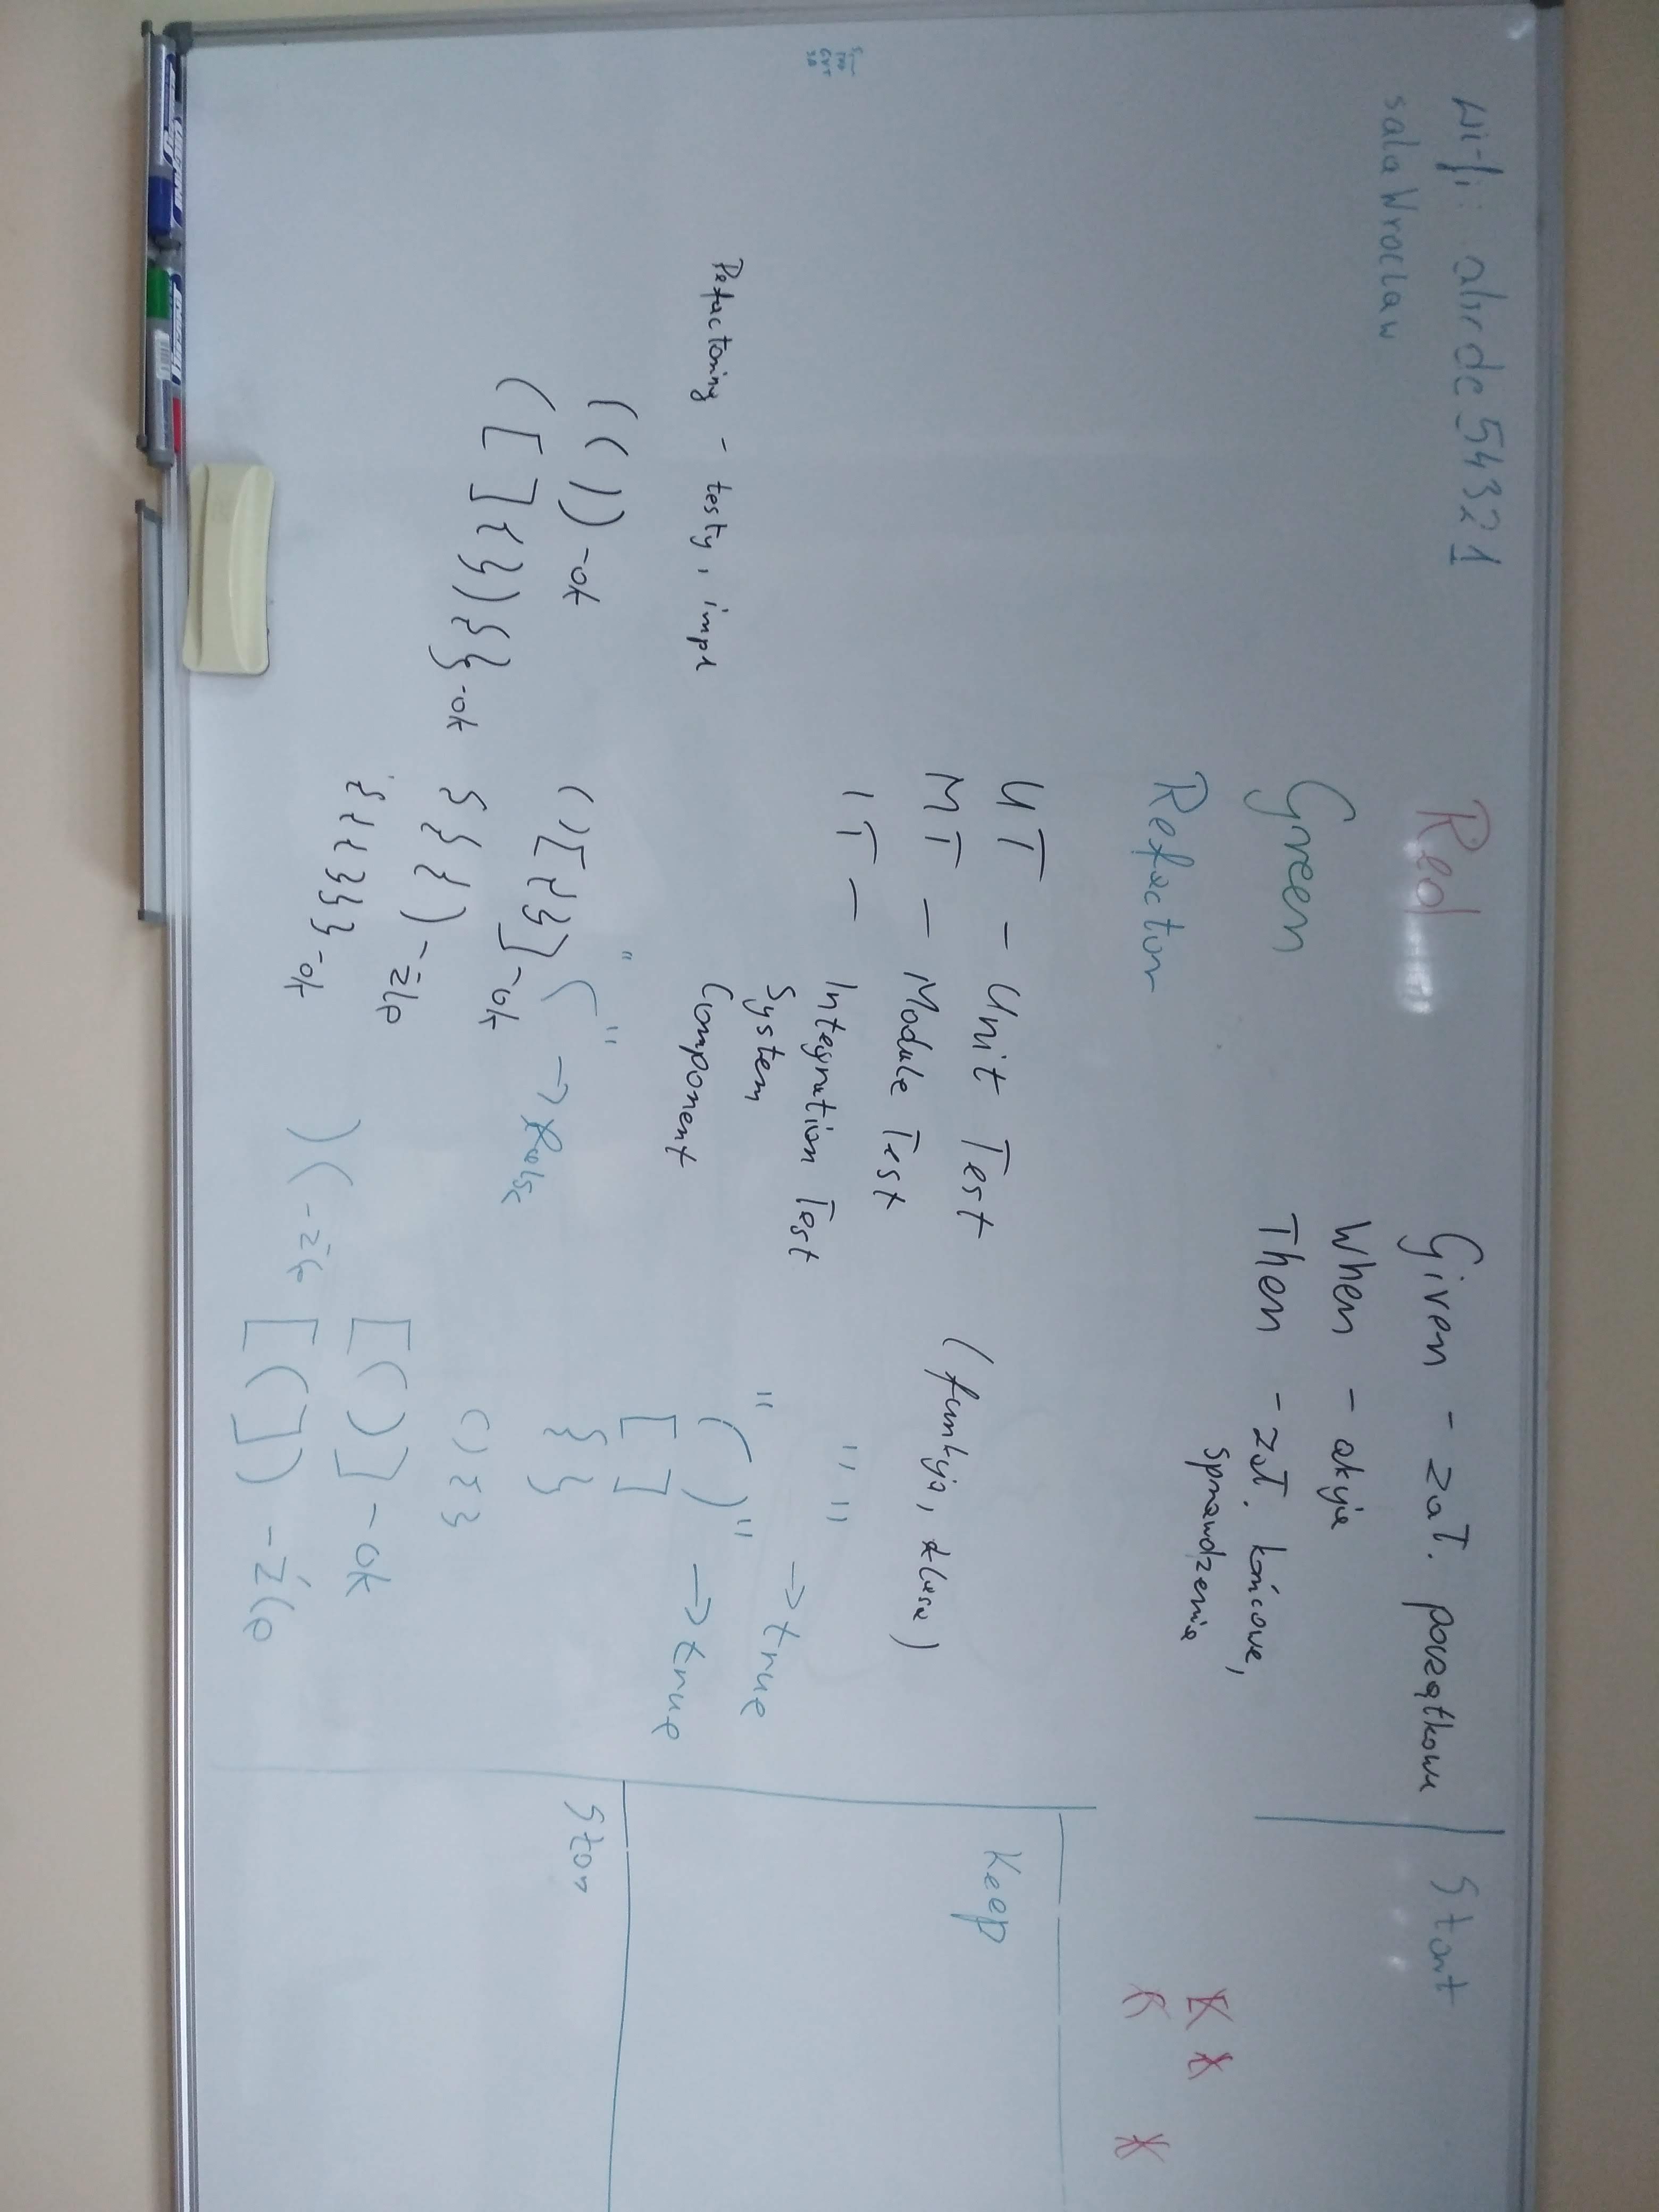 wi-fi: abcde54321
sala Wroclaw
Red
Green
Refactor
Given - zał. początkowe
When - akcja
Then - zał. końcowe,
sprawdzenia
UT - Unit Test (funkcja, klasa)
MT - Module Test
IT - Integration Test
System
Component
Refactoring - testy, impl
(()) -ok
([]{}){} -ok
()[{}] -ok
{}{) -źle
{{{}}} -ok
"(" → false
"" → true
"()" → true
[]
{}
(){}
[()] -ok
)( -źle
[(]) -źle
Start
Keep
Stop